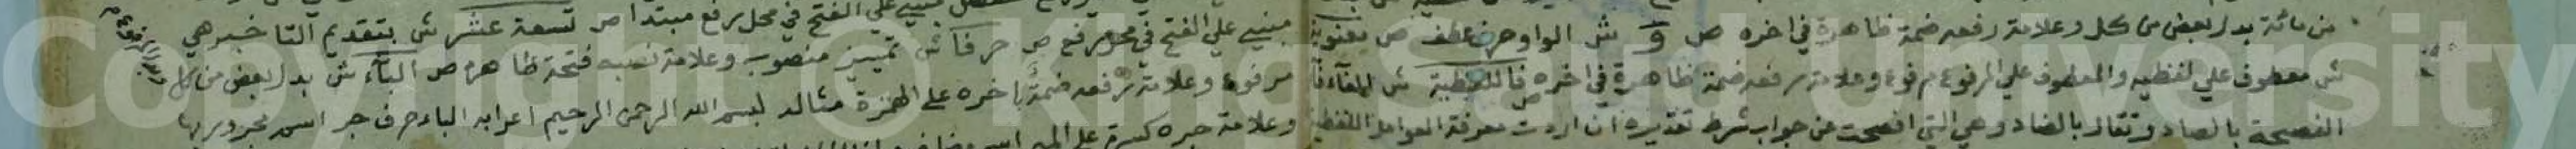 من مائة بدل بعض من كل وعلامة رفعه ضمة ظاهرة في اخره ص و ش الواو حرف عطف ص معنوية
ش معطوف علي لفظيه والمعطوف علي المرفوع مرفوع وعلامة رفعه ضمة ظاهرة في اخره ص فاللفظية ش الفاء فا
الفصيحة بالصاد وتقال بالضاد وهي التي افصحت عن جواب شرط تقديره ان اردت معرفة العوامل اللفظية
مبني علي الفتح في محل رفع مبتدا ص تسعة عشر ش بتقديم التا خبر هي
مبني علي الفتح في محل رفع ص حرفا ش تمييز منصوب وعلامة نصبه فتحة ظاهره ص الباء ش بدل بعض من كل
مرفوع وعلامة رفعه ضمة باخره علي الهمزة مثاله بسم الله الرحمن الرحيم اعرابه الباء حرف جر اسم مجرور بها
وعلامة جره كسرة علي الميم
Copy King Saud University